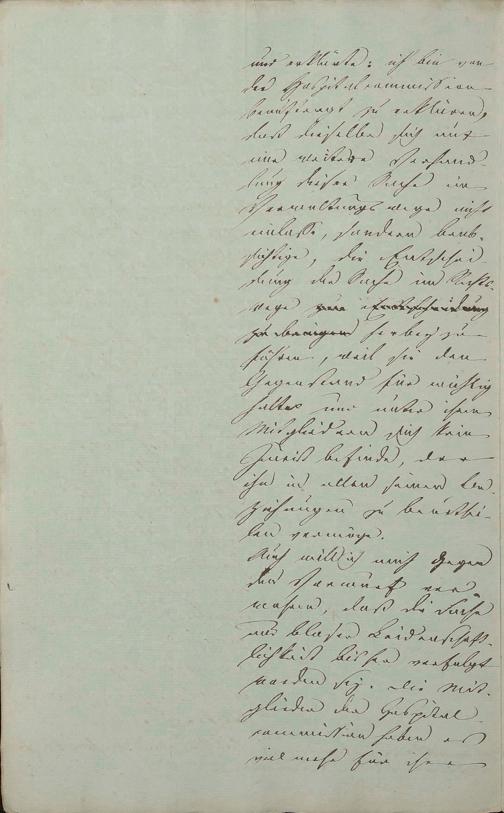 und erklärte: ich bin von
der Hospitalcommission
beauftragt zu erklären,
daß dieselbe sich auf
eine weitere Verhand-
lung dieser Sache im
Verwaltungswege nicht
einlasse, sondern beab-
sichtige, die Entschei-
dung der Sache im Rechts-
wege zur Entscheidung
zu bringen herbeyzu-
führen, weil sie den
Gegenstand für wichtig
halte und unter ihren
Mitgliedern sich kein
Jurist befinde, der
ihn in allen seinen Be-
ziehungen zu beurthei-
len vermöge.
Auch will ich mich gegen
den Vorwurf ver
wahren, daß die Sache
aus bloser Leidenschaft-
lichkeit bisher verfolgt
worden sey. Die Mit-
glieder der Hospital
commission haben es
vielmehr für ihre